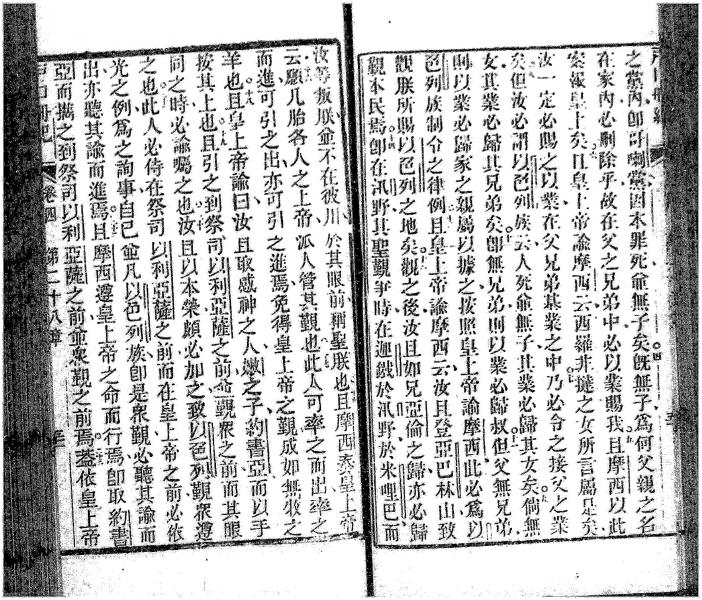 之黨內卽哥喇黨因本罪死並無子矣旣無子爲何父親之名
在家內必刪除乎故在父之兄弟中必以業賜我且摩西以此
案報皇上矣且皇上帝諭摩西云西羅非䜃之女所言屬是矣
汝一定必賜之以業在父兄弟基業之中乃必令之接父之業
矣但汝必謂以色列族云人死並無子其業必歸其女矣倘無
女其業必歸其兄弟矣卽無兄弟則以業必歸叔但父無兄弟
則以業必歸家之親屬以據之按照皇上帝諭摩西此必爲以
色列族制令之律例且皇上帝諭摩西云汝且登亞巴林山致
觀朕所賜以色列之地矣觀之後汝且如兄亞倫之歸亦必歸
覲本民焉卽在汛野其聖覲爭時在迦鐵於汛野於米哩巴而
汝等叛朕並不在彼川於其眼前稱聖朕也且摩西奏皇上帝
云願凡胎各人之上帝派人管其覲也此人可率之而出率之
而進可引之出亦可引之進焉免得皇上帝之覲成如無牧之
羊也且皇上帝諭曰汝且取感神之人嫩之子約書亞而以手
按其上也且引之到祭司以利亞薩之前並覲衆之前而其眼
同之時必諭囑之也汝且以本榮頗必加之致以色列覲衆遵
之也此人必侍在祭司以利亞薩之前而在皇上帝之前必依
光之例爲之詢事自己並凡以色列族卽是衆覲必聽其諭而
出亦聽其諭而進焉且摩西遵皇上帝之命而行焉卽取約書
亞而攜之到祭司以利亞薩之前並衆覲之前焉蓋依皇上帝
戶口冊紀 卷四 第二十八章